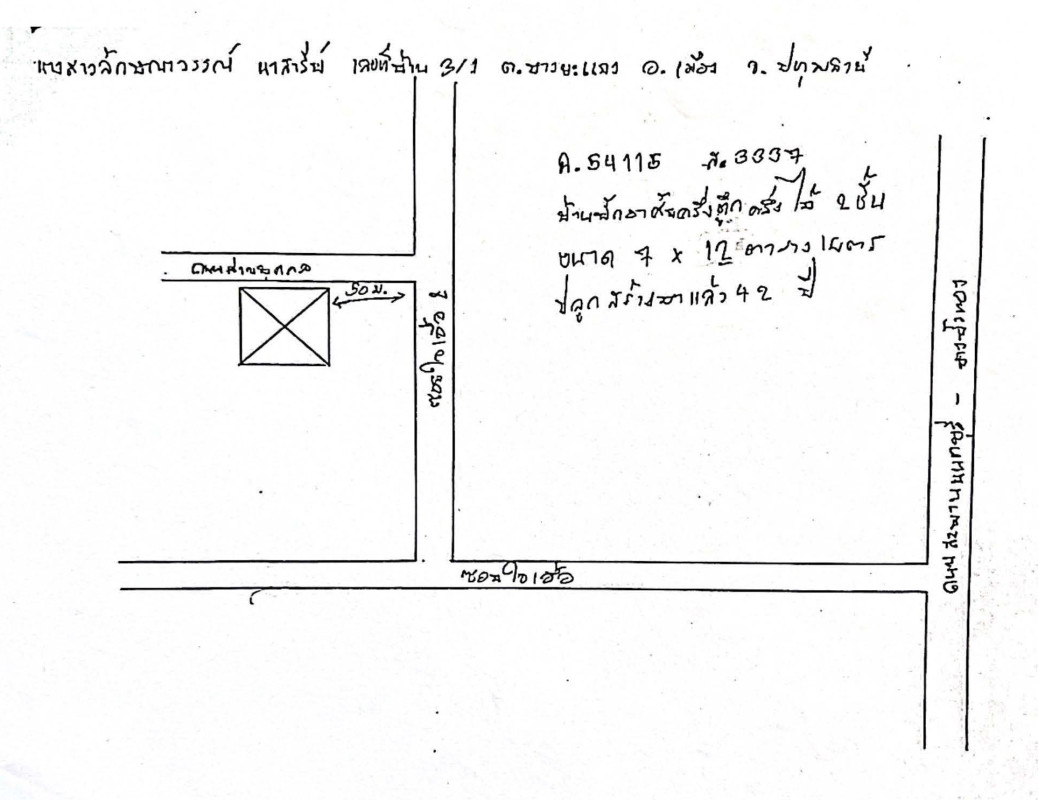 นางสาวลักษณาวรรณ์ นาสารีย์ เลขที่บ้าน 3/1 ต.บางขะแยง อ.เมือง จ.ปทุมธานี
ค.54115 ส.3337
บ้านพักอาศัยครึ่งตึกครึ่งไม้ 2 ชั้น
ขนาด 7 x 12 ตารางเมตร
ปลูกสร้างมาแล้ว 42 ปี
ถนนส่วนบุคคล
50 ม.
ซอยใจเอื้อ 2
ซอยใจเอื้อ
ถนนสะพานนนทบุรี - บางบัวทอง